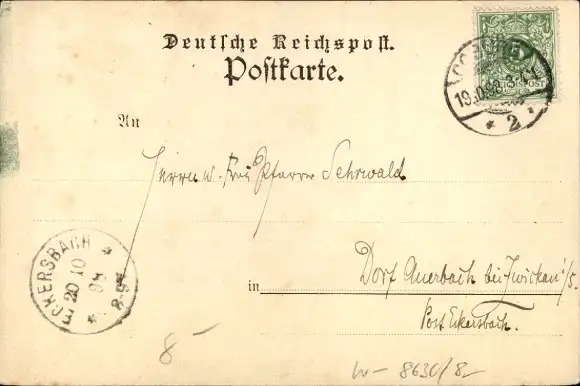 Deutsche Reichspost.
Postkarte.
19.10.98. 3-4N.
* 2 *
REICHSPOST
An
Herrn u. Frau Pfarrer Sehrwald
in
Dorf Auerbach bei Zwickau i/S.
Post Eckersbach.
ECKERSBACH
20 10
98
8-9V
8 -
8630/8